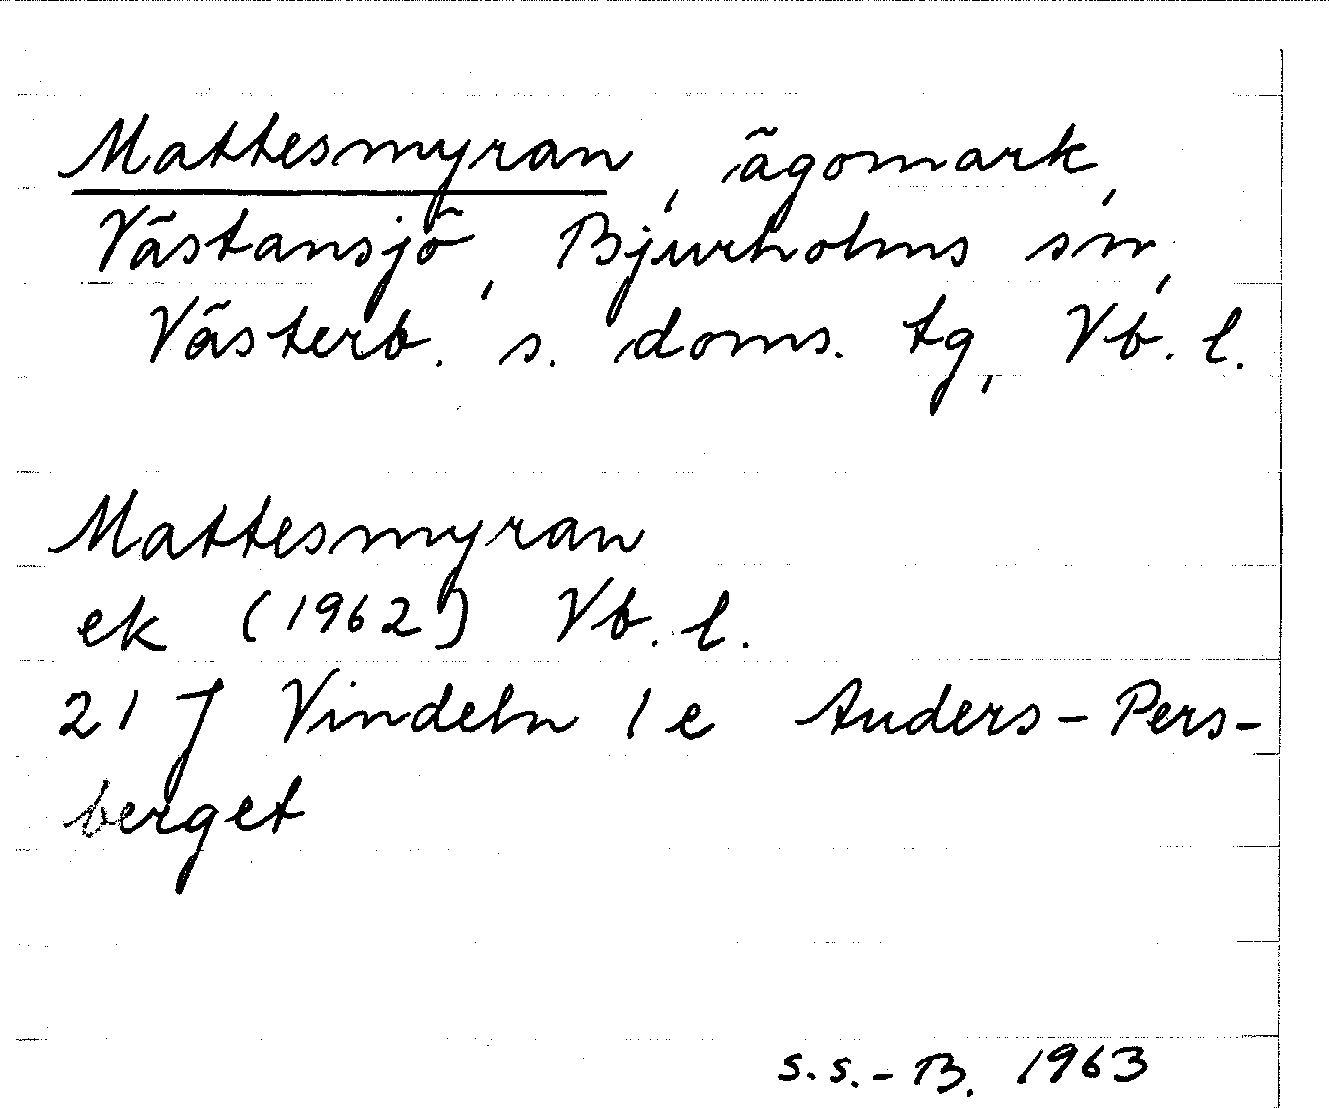 Mattesmyran, ägomark,
Västansjö, Bjurholms sn,
Västerb. s. doms. tg, Vb. l.
Mattesmyran
ek (1962) Vb. l.
21 J Vindeln 1e Anders-Pers-
berget
S.S.-B. 1963